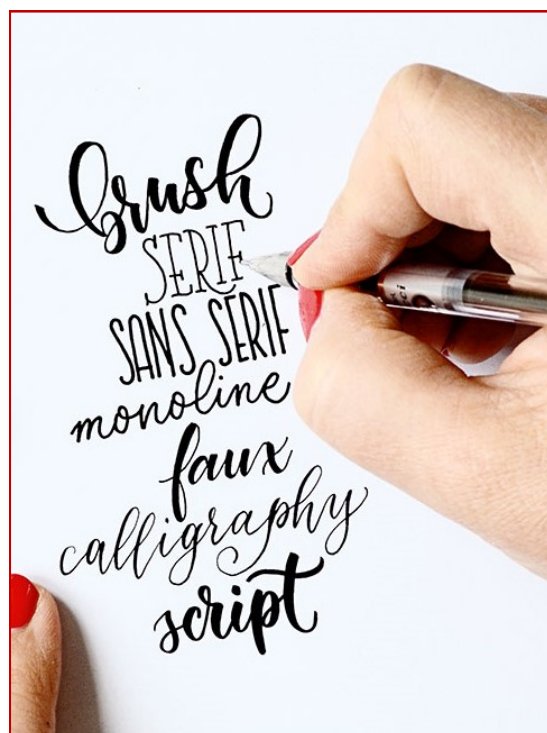 brush
SERIF
SANS SERIF
monoline
faux
calligraphy
script